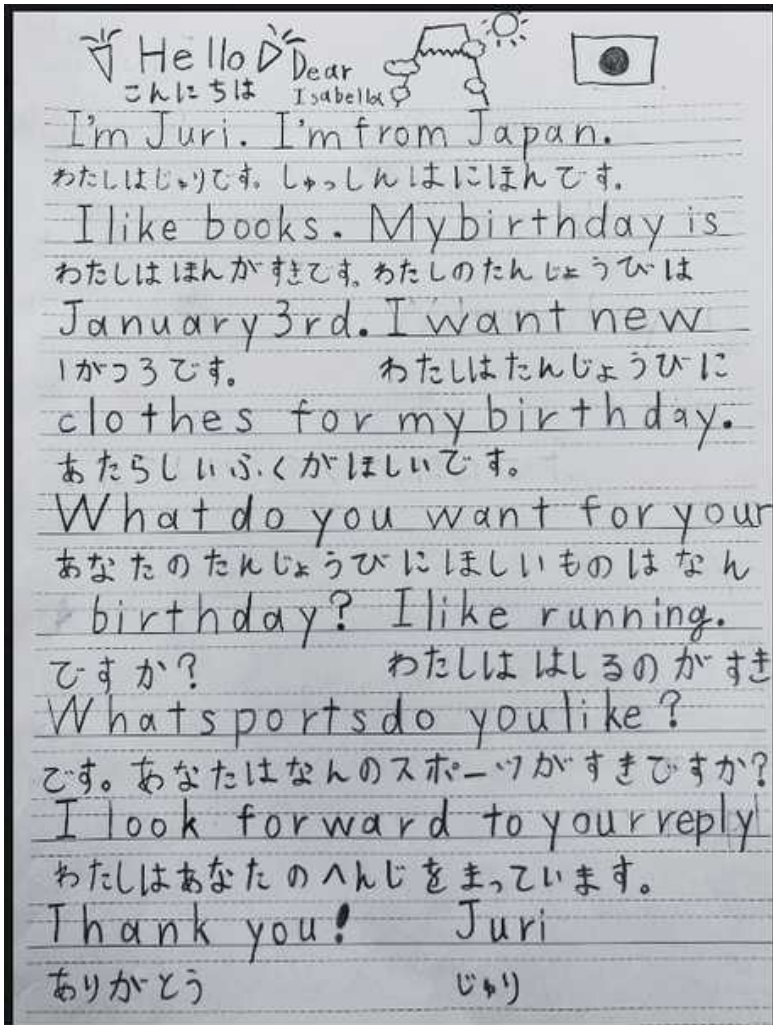 Hello Dear
こんにちは Isabella
I'm Juri. I'm from Japan.
わたしはじゅりです。しゅっしんはにほんです。
I like books. My birthday is
わたしはほんがすきです。わたしのたんじょうびは
January 3rd. I want new
1がつ3です。 わたしはたんじょうびに
clothes for my birthday.
あたらしいふくがほしいです。
What do you want for your
あなたのたんじょうびにほしいものはなん
birthday? I like running.
ですか? わたしははしるのがすき
What sports do you like?
です。あなたはなんのスポーツがすきですか?
I look forward to your reply
わたしはあなたのへんじをまっています。
Thank you! Juri
ありがとう じゅり